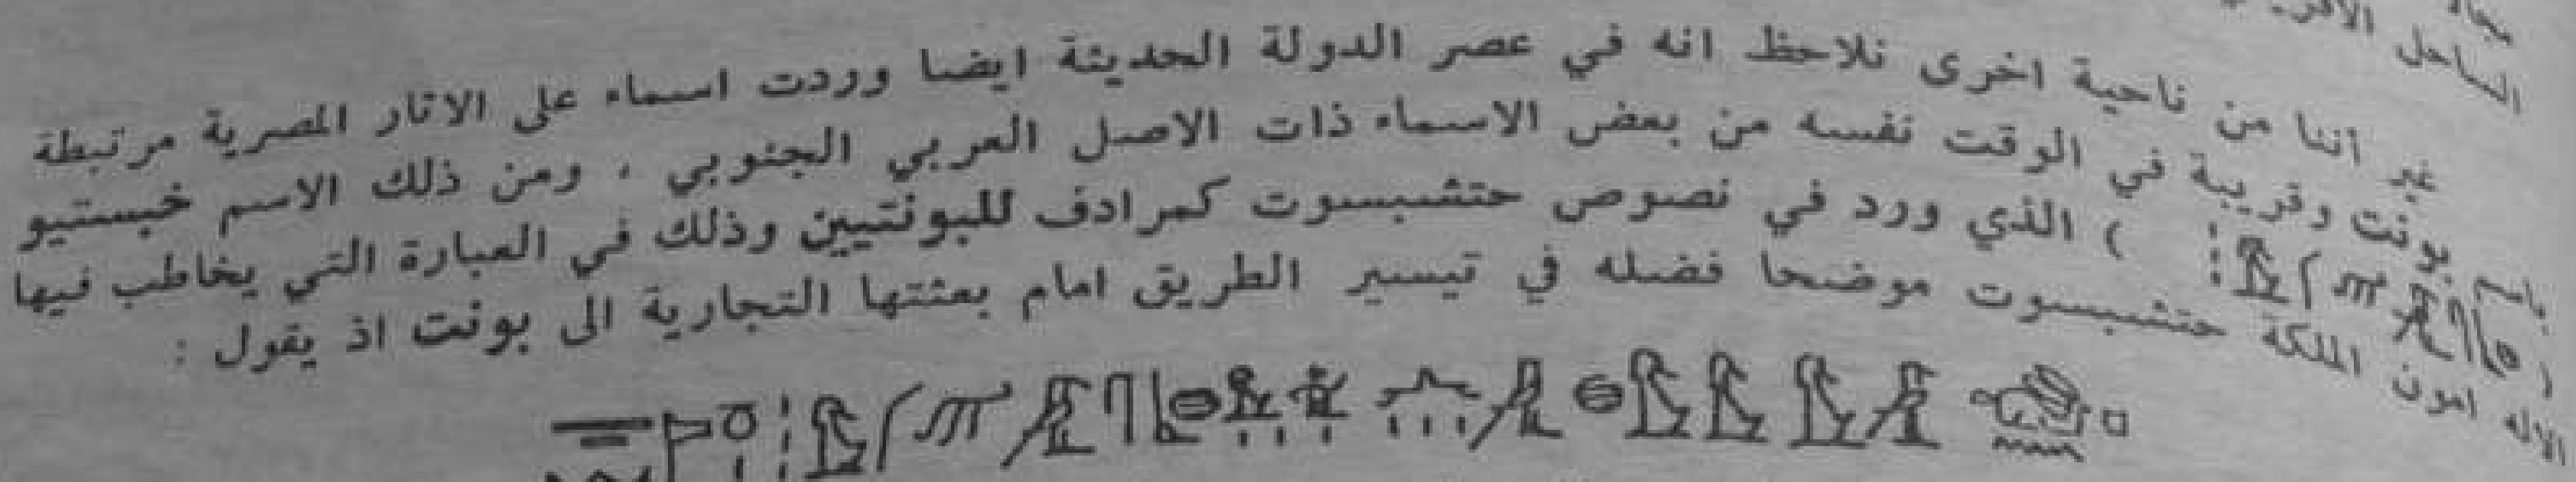 الساحل
غير أننا من ناحية اخرى نلاحظ انه في عصر الدولة الحديثة ايضا وردت اسماء على الاثار المصرية مرتبطة
باسم بونت وقريبة في الوقت نفسه من بعض الاسماء ذات الاصل العربي الجنوبي ، ومن ذلك الاسم خبستيو
( ) الذي ورد في نصوص حتشبسوت كمرادف للبونتيين وذلك في العبارة التي يخاطب فيها
الاله امون الملكة حتشبسوت موضحا فضله في تيسير الطريق امام بعثتها التجارية الى بونت اذ يقول :